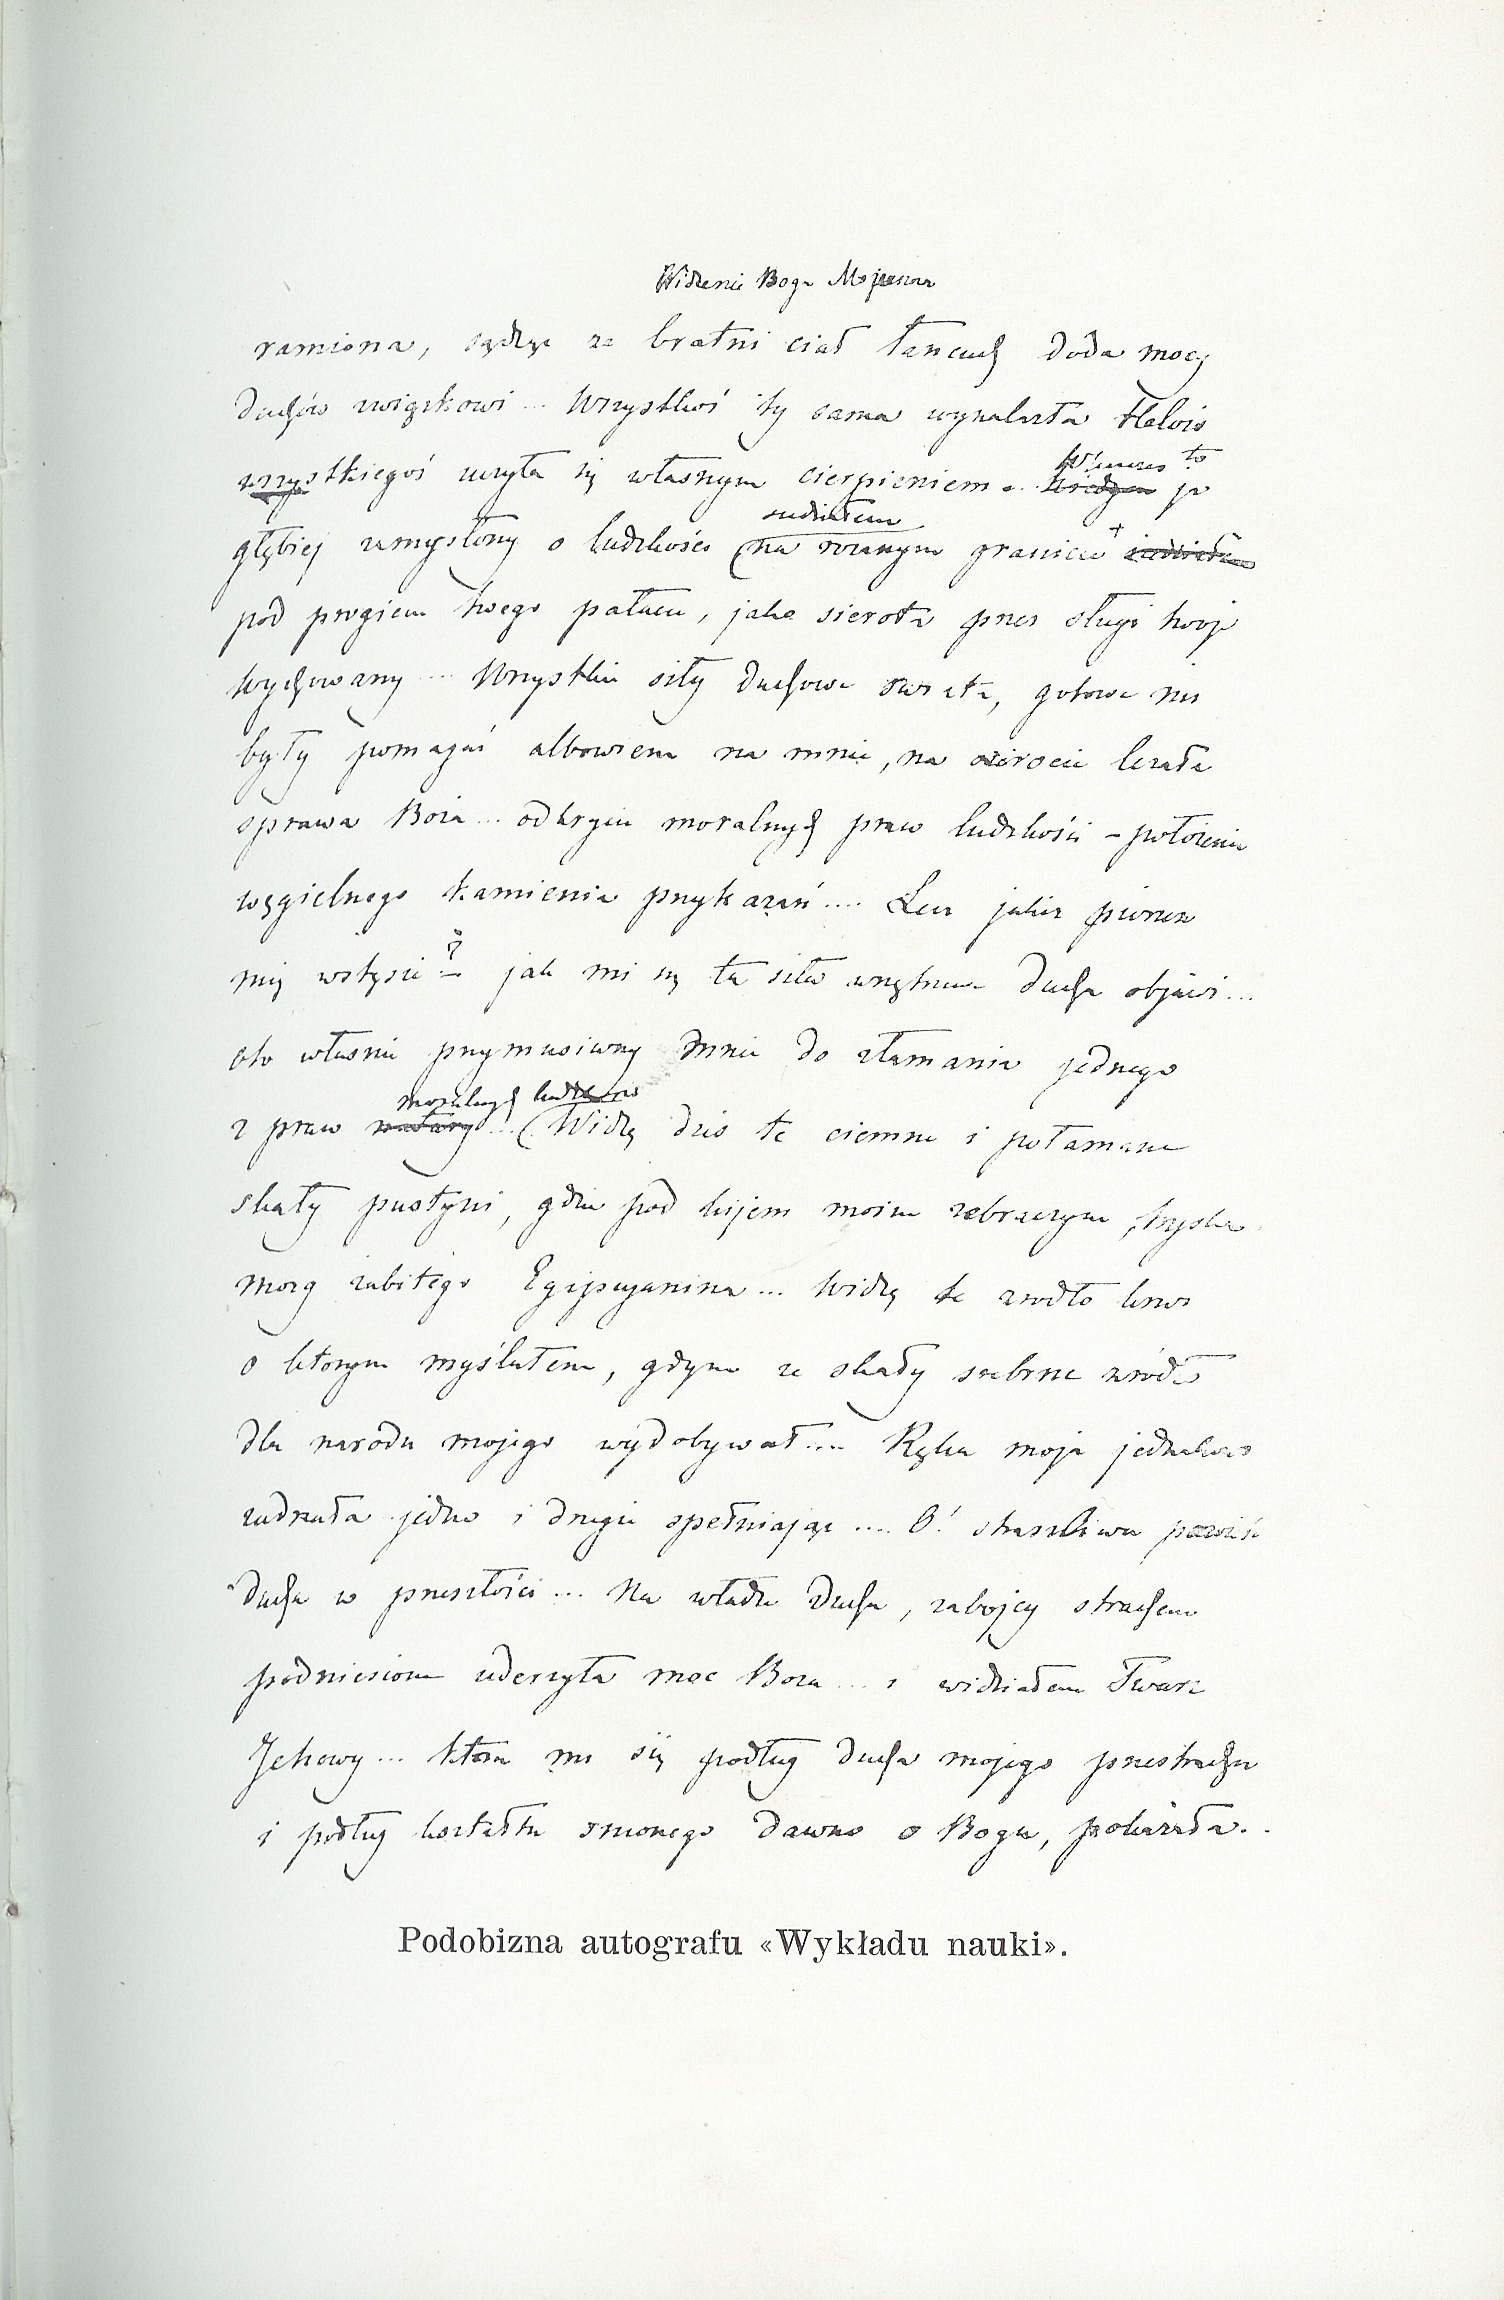 Widzenie Boga Mojżesza
ramiona, sądząc że bratni ciał łańcuch doda mocy
duchów związkowi... Wszystkoś ty sama wynalazła Helois
wszystkiegoś uczyła się własnym cierpieniem...
Wówczas to
niegdyś ja
siedziałem
głębiej zamyślony o ludzkości (na różanym granicie + siedziałem
pod progiem twego pałacu, jako sierota przez sługi twoje
wychowany... Wszystkie siły duchowe świata, gotowe mi
były pomagać albowiem na mnie, na sierocie leżała
sprawa Boża... odkrycie moralnych praw ludzkości – położenie
węgielnego kamienia przykazań.... Lecz jakiż piorun
mię wstrzęsie? jak mi się ta siła wnętrzna ducha objawi...
oto właśnie przymusiwszy mnie do złamania jednego
moralnych ludzkości
z praw natury... (Widzę dziś te ciemne i połamane
skały pustyni, gdzie pod kijem moim żebraczym, tryska
mózg zabitego Egipcyanina... Widzę te zrodło krwi
o ktorym myślałem, gdym ze skały srebrne źródło
dla narodu mojego wydobywał.... Ręka moja jednakowo
zadrżała jedno i drugie spełniając.... O! straszliwa
ducha w przeszłości... Na władzę ducha, zabojcy strachem
podniesioną uderzyła moc Boża... i widziałem Twarz
Jehowy... ktora mi się podług ducha mojego przestrachu
i podług kształtu snionego dawno o Bogu, pokazała..
Podobizna autografu «Wykładu nauki».